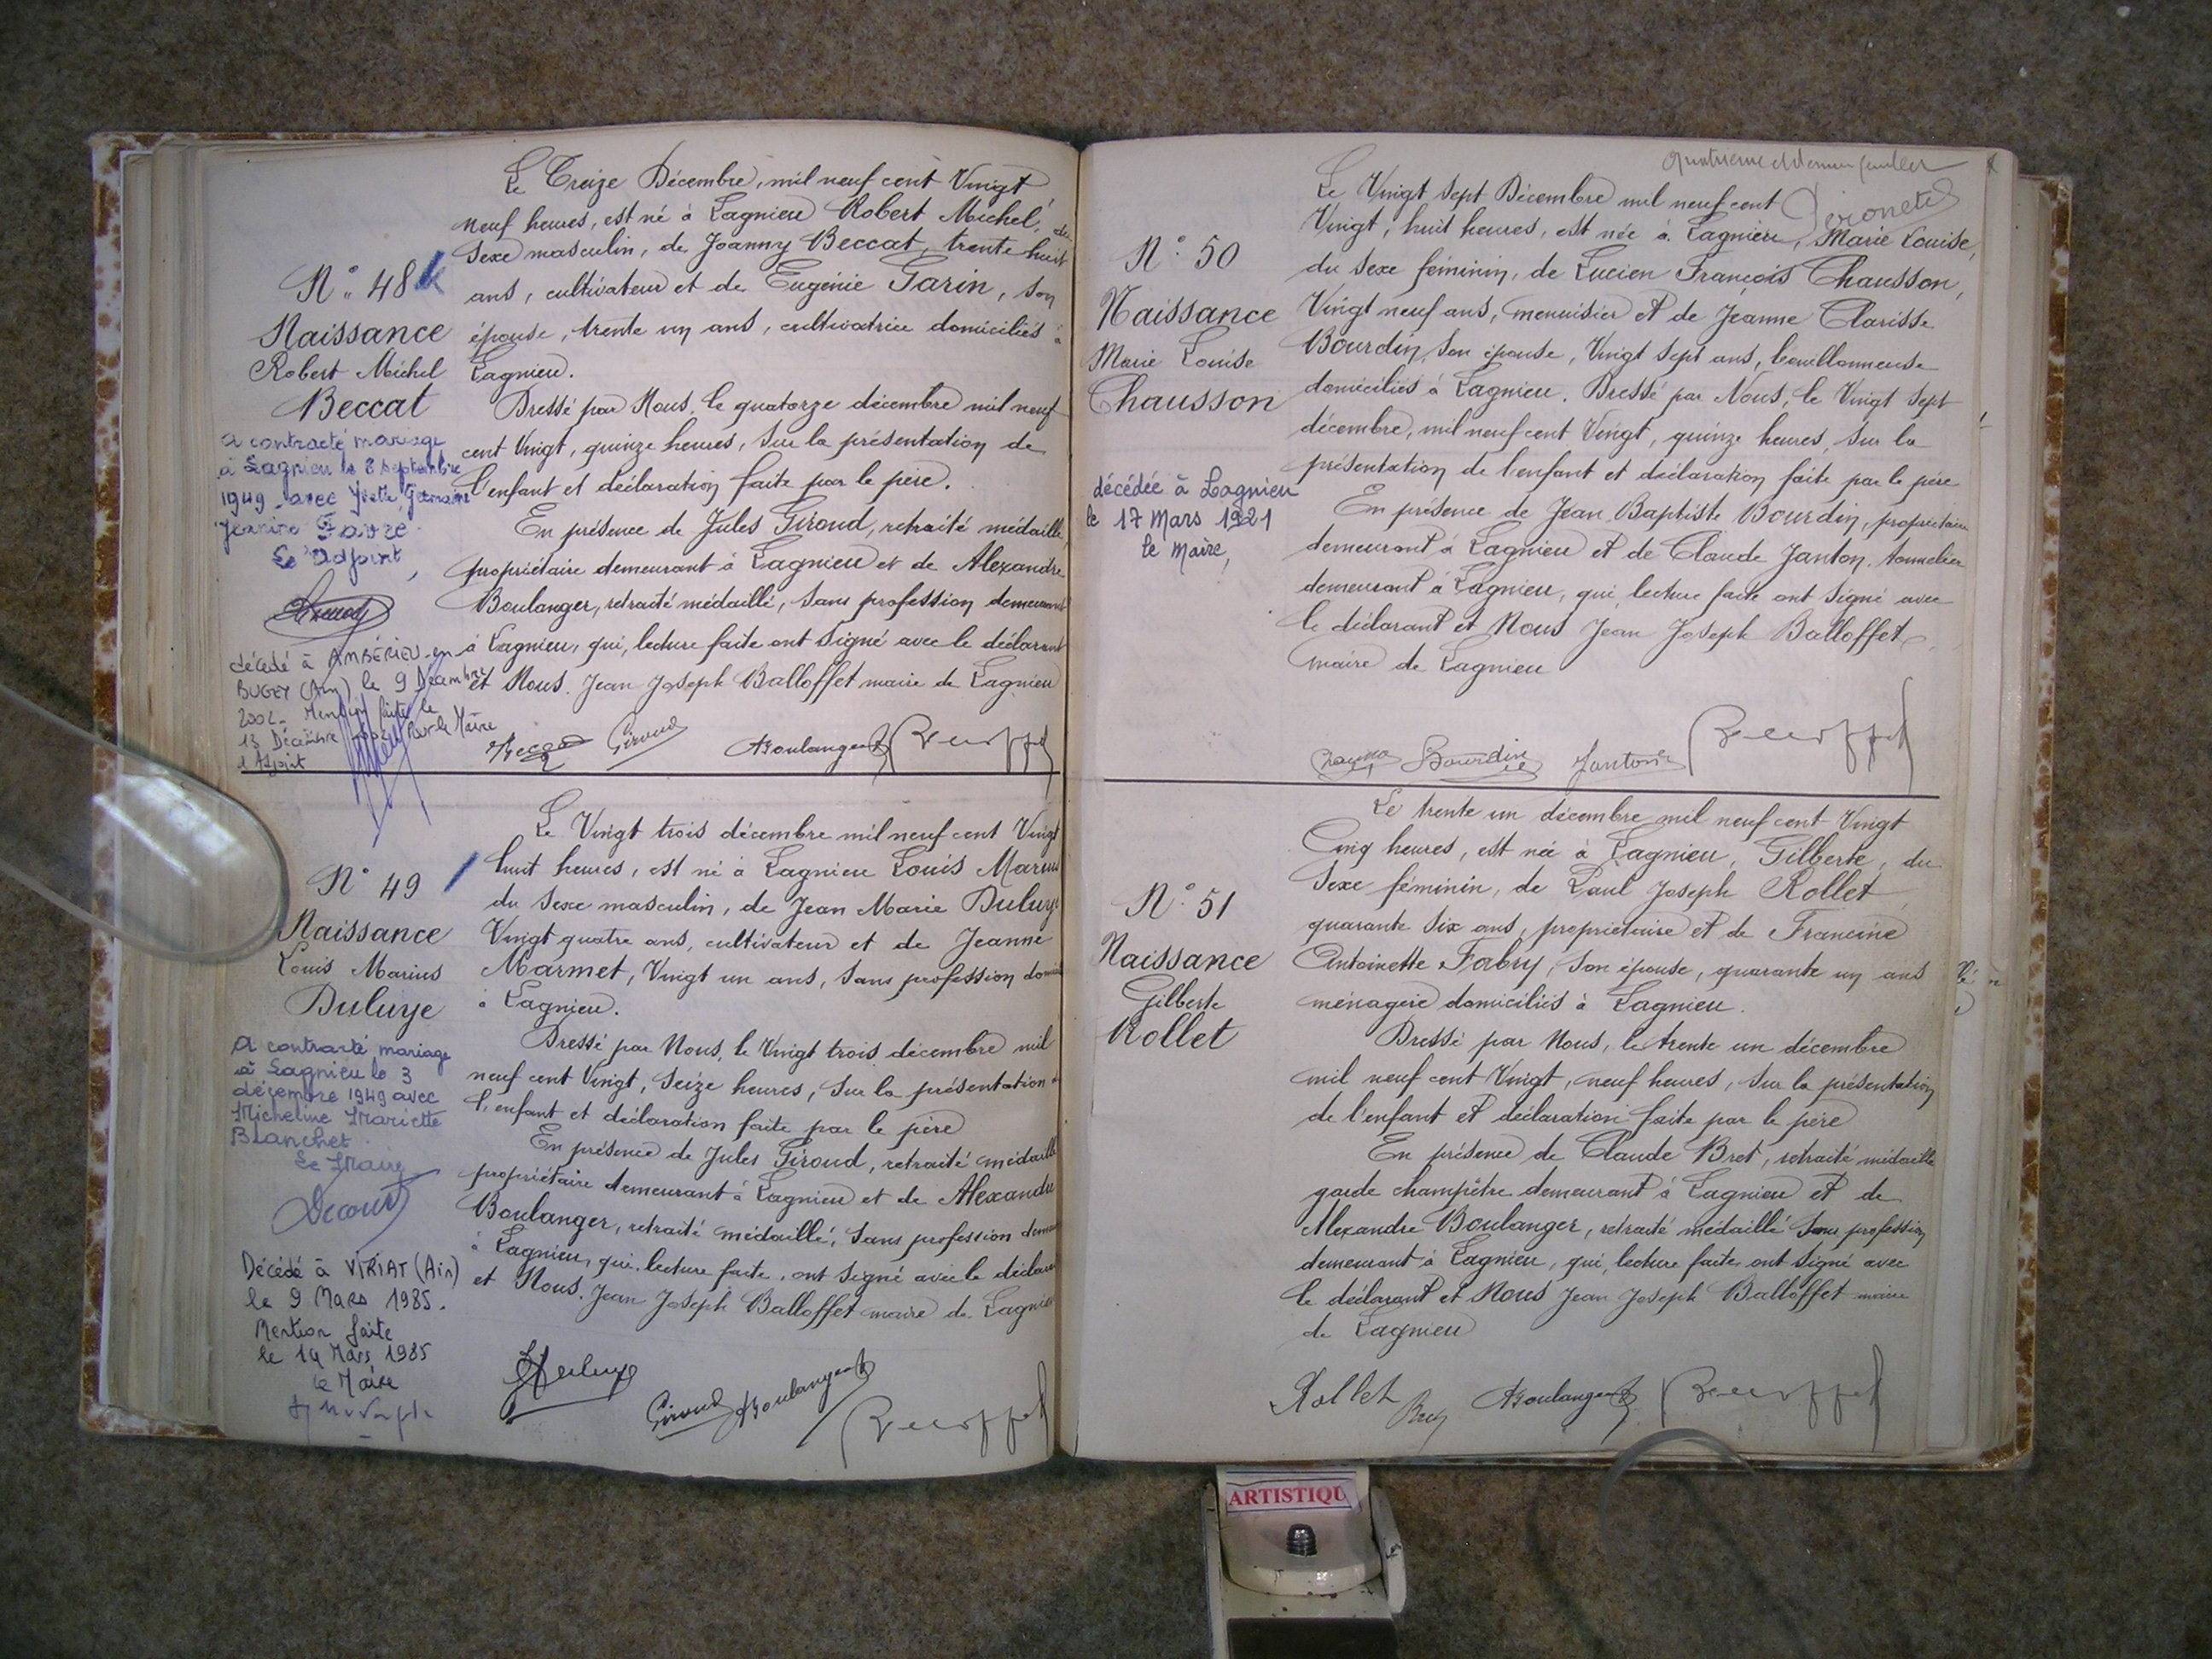 N° 48
Naissance
Robert Michel
Beccat
a contracté mariage
à Lagnieu le 8 septembre
1949 avec Yvette Germaine
Jeanine Favre
Le adjoint,
décédé à AMBÉRIEU-en-
BUGEY (Ain) le 9 Décembre
2002. Mention faite le
13 Décembre 2002 Pour le Maire
l'Adjoint
Le Treize Décembre, mil neuf cent Vingt
neuf heures, est né à Lagnieu Robert Michel, du
Sexe masculin, de Joanny Beccat, trente huit
ans, cultivateur et de Eugénie Garin, son
épouse, trente un ans, cultivatrice domiciliés à
Lagnieu.
Dressé par Nous, le quatorze décembre mil neuf
cent Vingt, quinze heures, Sur la présentation de
l'enfant et déclaration faite par le père.
En présence de Jules Giroud, retraité médaillé,
propriétaire demeurant à Lagnieu et de Alexandre
Boulanger, retraité médaillé, Sans profession demeurant
à Lagnieu, qui, lecture faite ont Signé avec le déclarant
et Nous. Jean Joseph Balloffet maire de Lagnieu
Beccat Giroud ABoulanger
N° 49
Naissance
Louis Marius
Duluye
A contracté mariage
à Lagnieu le 3
décembre 1949 avec
Micheline Mariette
Blanchet.
Le Maire
Décédé à VIRIAT (Ain)
le 9 Mars 1985.
Mention faite
le 14 Mars 1985
Le Maire
Le Vingt trois décembre mil neuf cent Vingt
huit heures, est né à Lagnieu Louis Marius
du Sexe masculin, de Jean Marie Duluye
Vingt quatre ans, cultivateur et de Jeanne
Marmet, Vingt un ans, Sans profession domi
à Lagnieu.
Dressé par Nous, le Vingt trois décembre mil
neuf cent Vingt, Seize heures, Sur la présentation
l'enfant et déclaration faite par le père
En présence de Jules Giroud, retraité médaillé
propriétaire demeurant à Lagnieu et de Alexandre
Boulanger, retraité médaillé, Sans profession demeu
à Lagnieu, qui, lecture faite, ont Signé avec le déclara
et Nous. Jean Joseph Balloffet maire de Lagnieu
Duluye Giroud ABoulanger
quatrieme et dernier feuillet
N° 50
Naissance
Marie Louise
Chausson
décédée à Lagnieu
le 17 Mars 1921
le Maire,
Le Vingt Sept Décembre mil neuf cent
Vingt, huit heures, est née à Lagnieu, Marie Louise,
du Sexe féminin, de Lucien François Chausson,
Vingt neuf ans, menuisier et de Jeanne Clarisse
Bourdin, Son épouse, Vingt Sept ans, bouillonneuse
domiciliés à Lagnieu. Dressé par Nous, le Vingt Sept
décembre, mil neuf cent Vingt, quinze heures, Sur la
présentation de l'enfant et déclaration faite par le père
En présence de Jean Baptiste Bourdin, propriétaire
demeurant à Lagnieu et de Claude Janton, tonnelier
demeurant à Lagnieu, qui, lecture faite ont Signé avec
le déclarant et Nous Jean Joseph Balloffet,
maire de Lagnieu
Bourdin Janton
N° 51
Naissance
Gilberte
Rollet
Le trente un décembre mil neuf cent Vingt
Cinq heures, est née à Lagnieu, Gilberte, du
Sexe féminin, de Paul Joseph Rollet,
quarante Six ans, propriétaire et de Francine
Antoinette Fabry, Son épouse, quarante un ans
ménagère domiciliés à Lagnieu.
Dressé par Nous, le trente un décembre
mil neuf cent Vingt, neuf heures, Sur la présentation
de l'enfant et déclaration faite par le père
En présence de Claude Bret, retraité médaillé
garde champêtre demeurant à Lagnieu et de
Alexandre Boulanger, retraité médaillé Sans profession
demeurant à Lagnieu, qui, lecture faite, ont Signé avec
le déclarant et Nous Jean Joseph Balloffet maire
de Lagnieu
Rollet Bret ABoulanger
ARTISTIQU